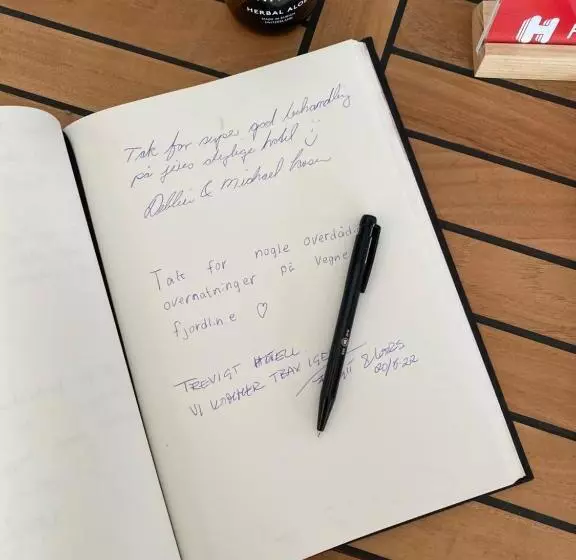 HERBAL ALOE
Tak for super god behandling
på jeres dejlige hotel
Debbie & Michael
Tak for nogle overdåd
overnatninger på vegne
fjordline ♡
TREVIGT HOTELL
VI KOMMER TBAK IGE
& LARS
20/6-22
H